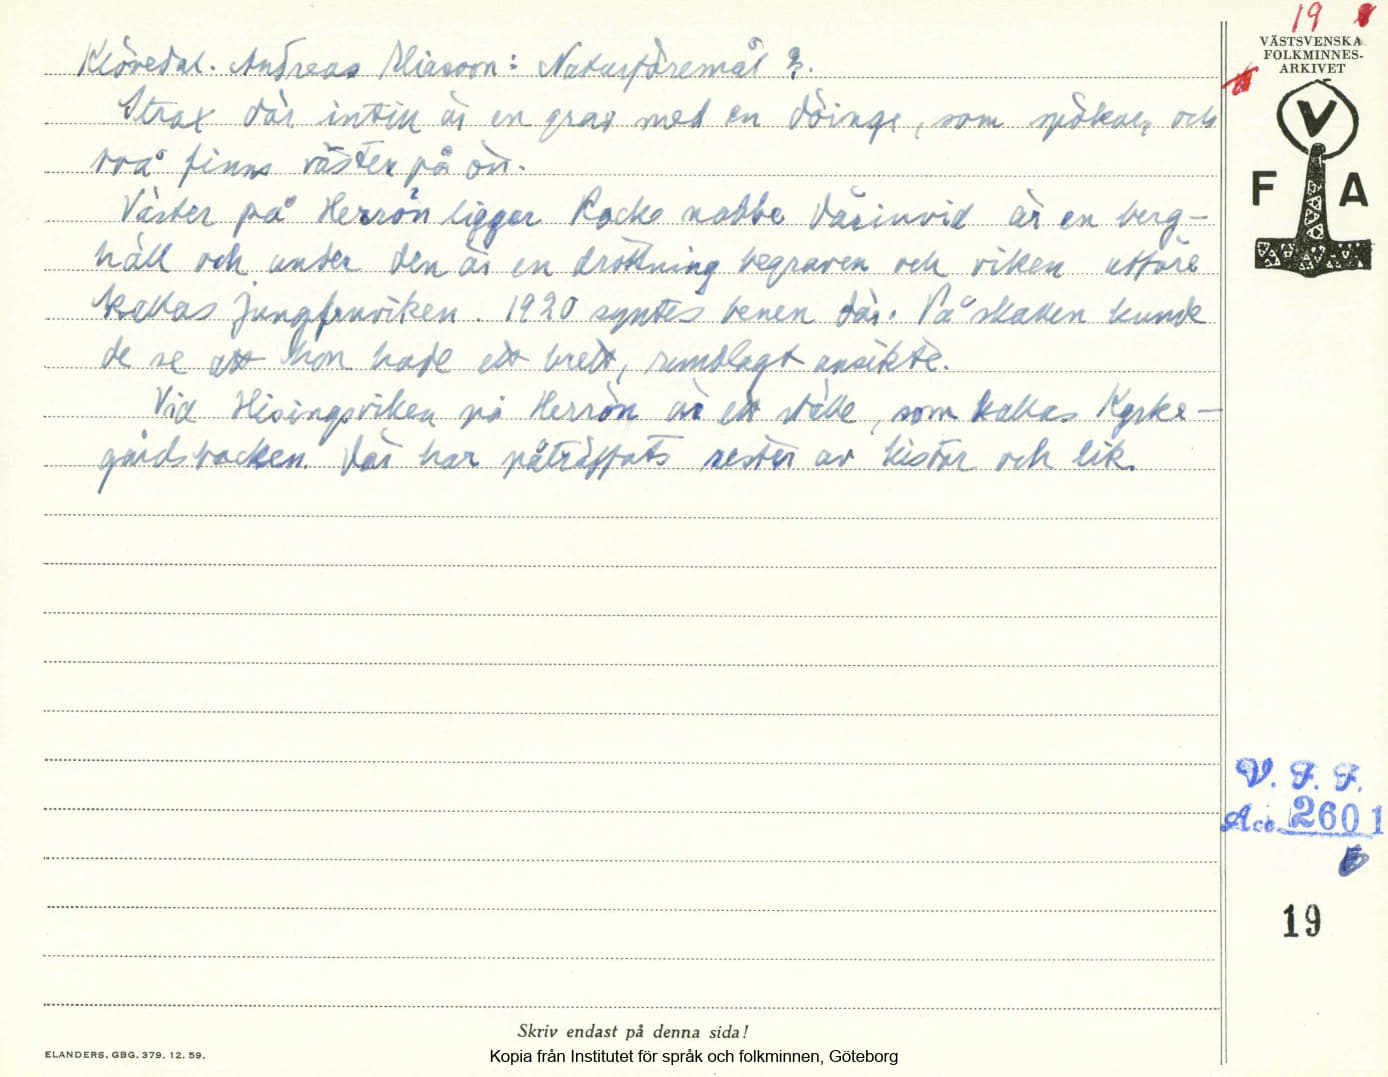 19
VÄSTSVENSKA
FOLKMINNES-
ARKIVET
V
F A
Klövedal. Andreas Eliasson: Naturföremål 3.
Strax där intill är en grav med en döing, som spökar, och
två finns väster på ön.
Väster på Herrön ligger nabbe Därinvid är en berg-
häll och under den är en drottning begraven och viken utföre
kallas Jungfruviken. 1920 syntes benen där. På skallen kunde
de se att hon hade ett brett, rundlagt ansikte.
Vid Hisingsviken på Herrön är ett ställe, som kallas Kyrke-
gårdsbacken. Där har påträffats rester av kistor och lik.
V. F. F.
Acc. 2601
19
Skriv endast på denna sida!
ELANDERS, GBG. 379. 12. 59.
Kopia från Institutet för språk och folkminnen, Göteborg